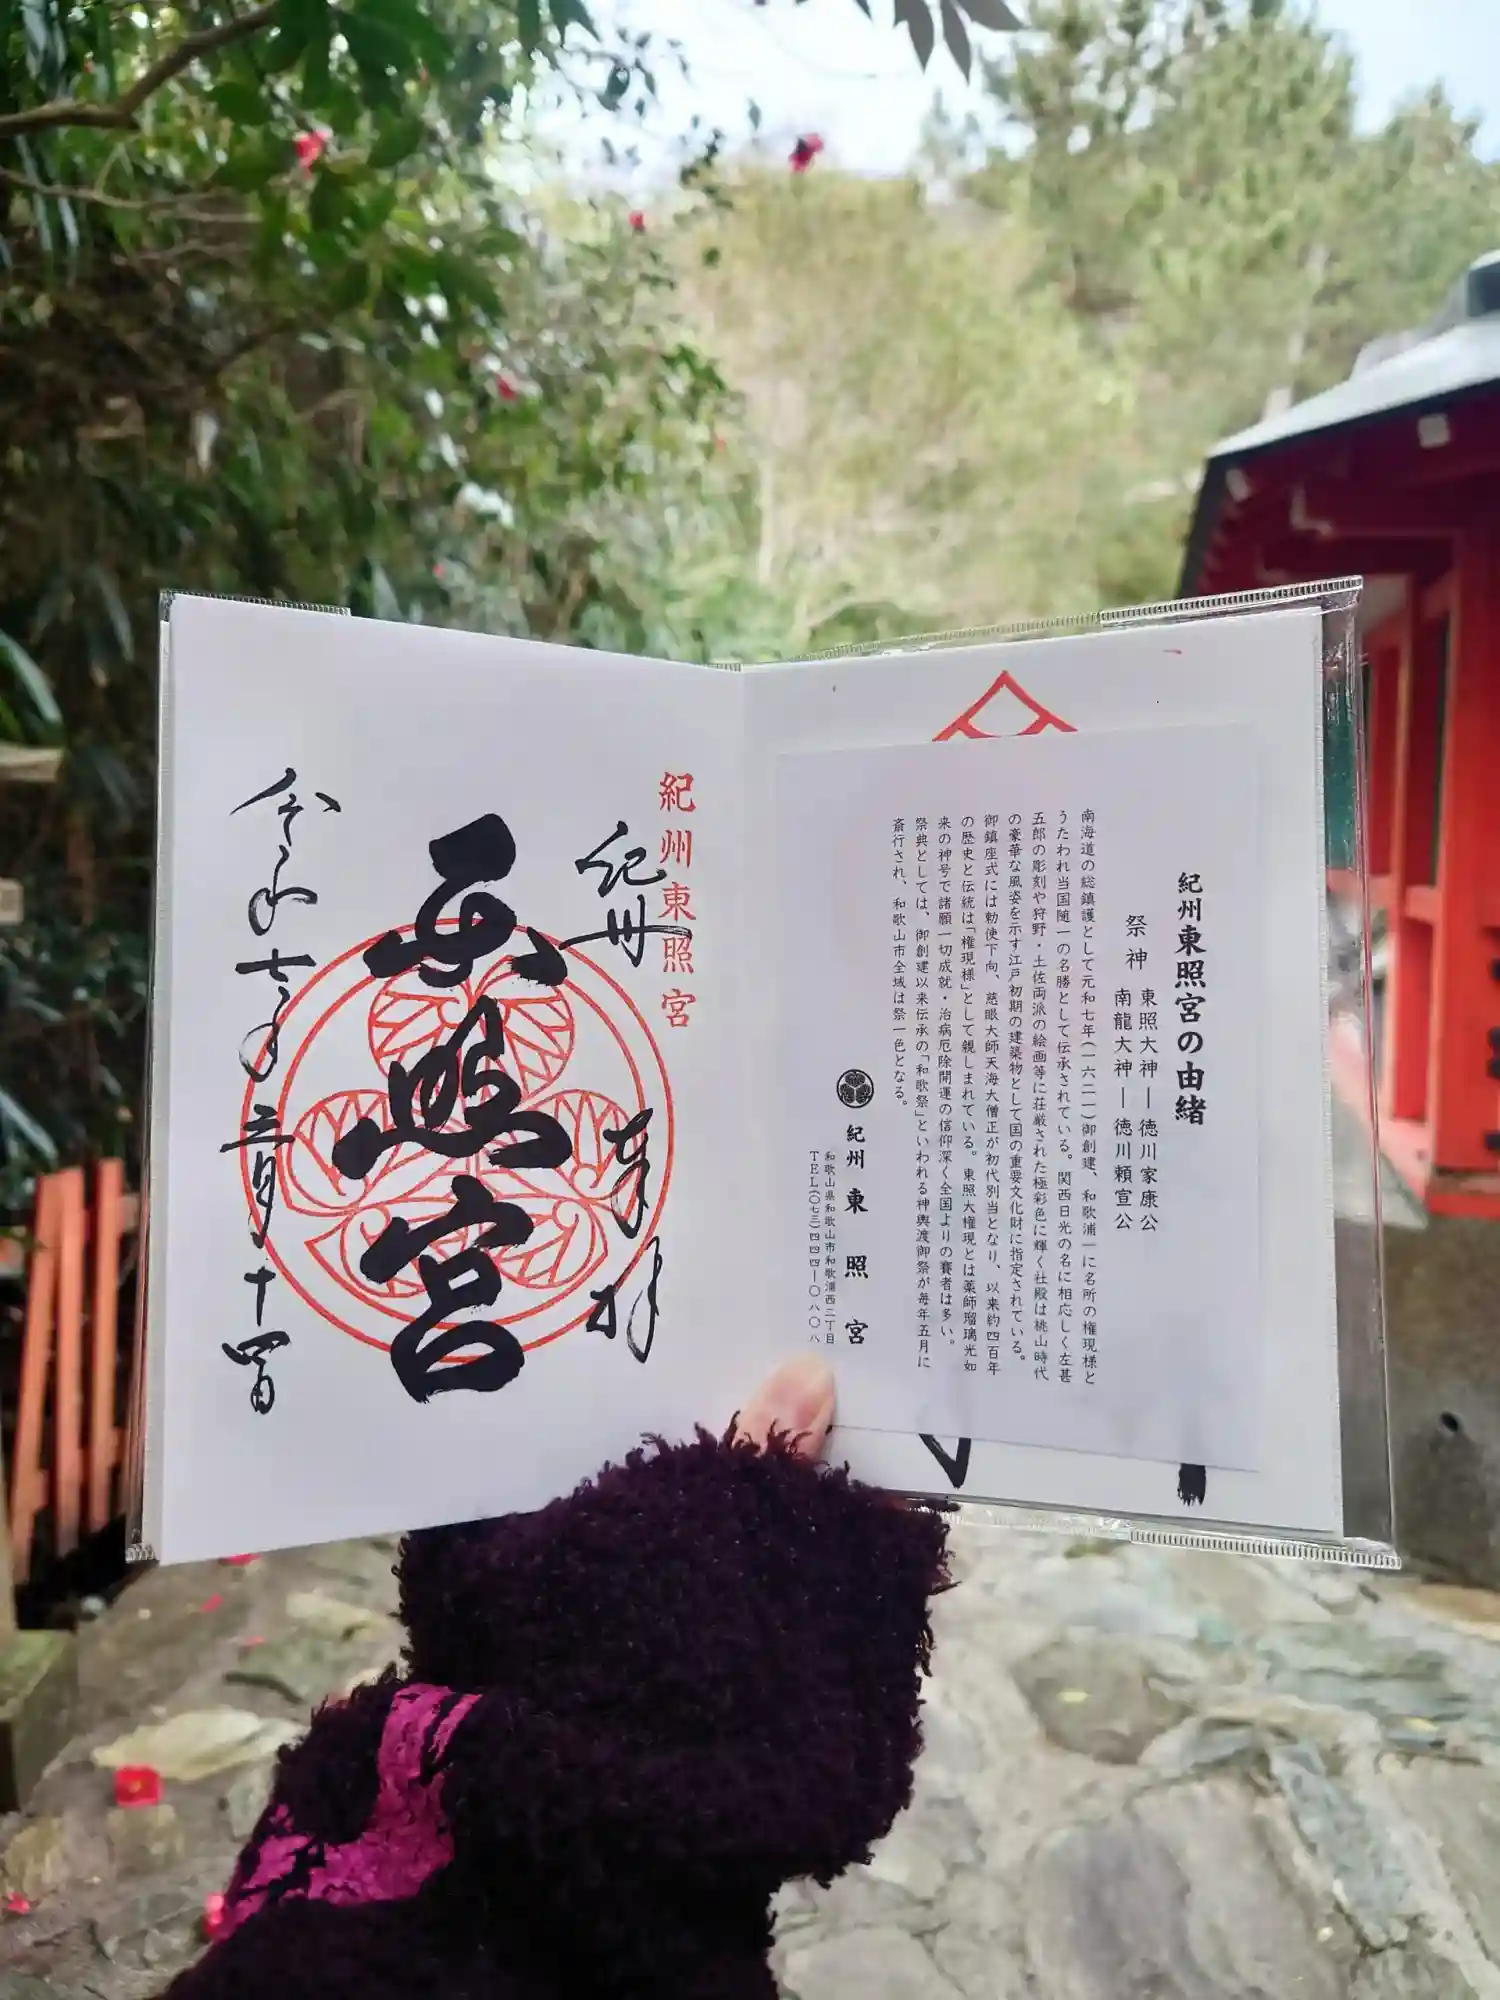 紀州東照宮の由緒
祭神 東照大神―徳川家康公
南龍大神―徳川頼宣公
南海道の総鎮護として元和七年(一六二一)御創建、和歌浦一に名所の権現様と
うたわれ当国随一の名勝として伝承されている。関西日光の名に相応しく左甚
五郎の彫刻や狩野・土佐両派の絵画等に荘厳された極彩色に輝く社殿は桃山時代
の豪華な風姿を示す江戸初期の建築物として国の重要文化財に指定されている。
御鎮座式には勅使下向、慈眼大師天海大僧正が初代別当となり、以来約四百年
の歴史と伝統は「権現様」として親しまれている。東照大権現とは薬師瑠璃光如
来の神号で諸願一切成就・治病厄除開運の信仰深く全国よりの賽者は多い。
祭典としては、御創建以来伝承の「和歌祭」といわれる神輿渡御祭が毎年五月に
斎行され、和歌山市全域は祭一色となる。
紀州東照宮
和歌山県和歌山市和歌浦西二丁目
TEL(〇七三)四四四―〇八〇八
紀州東照宮
紀州
奉拝
東照宮
令和七年三月十四日